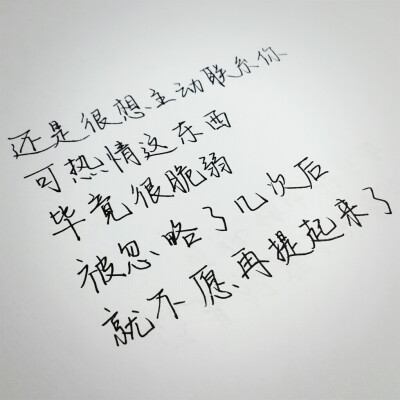 还是很想主动联系你
可热情这东西
毕竟很脆弱
被忽略了几次后
就不愿再提起来了